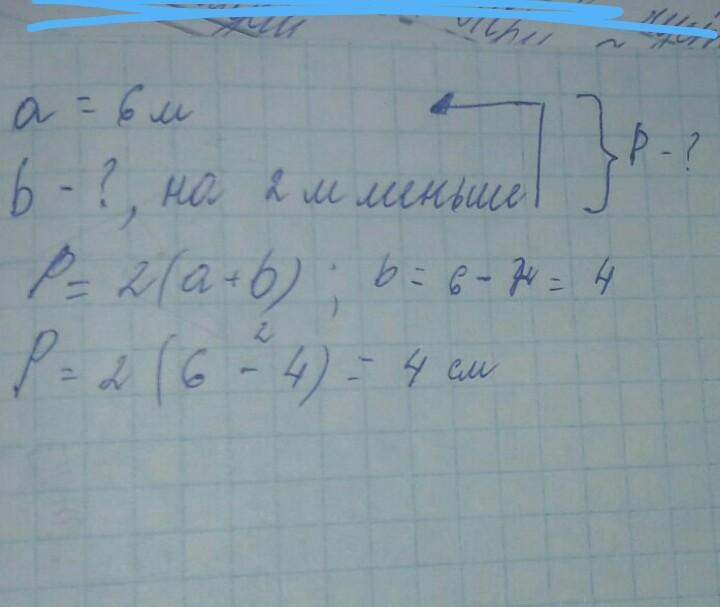 a = 6 м
b - ?, на 2 м меньше } P - ?
P = 2(a+b); b = 6 - = 4
2
P = 2(6 - 4) = 4 см